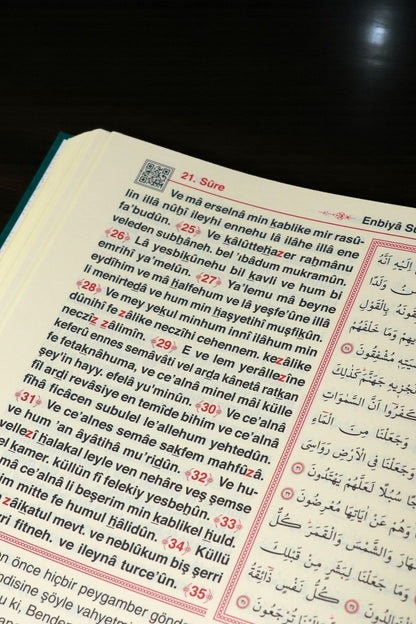 21. Sûre
Enbiyâ Sû
Ve mâ erselnâ min kablike mir rasû-
lin illâ nûhî ileyhi ennehu lâ ilâhe illâ ene
fa'budûn. 25 Ve kâlûttehazer rahmânu
veleden subhâneh. bel 'ıbâdum mukramûn.
26 Lâ yesbikûnehu bil kavli ve hum bi
emrihî ya'melûn. 27 Ya'lemu mâ beyne
eydîhim ve mâ halfehum ve lâ yeşfe'ûne illâ
li menirtedâ ve hum min haşyetihî muşfikûn.
28 Ve mey yekul minhum innî ilâhum min
dûnihî fe zâlike neczîhi cehennem. kezâlike
neczîz zâlimîn. 29 E ve lem yerâllezîne
keferû ennes semâvâti vel arda kânetâ ratkan
fe fetaknâhuma, ve ce'alnâ minel mâi külle
şey'in hayy. efelâ yu'minûn. 30 Ve ce'alnâ
fîl ardı revâsiye en temîde bihim ve ce'alnâ
fîhâ ficâcen subulel le'allehum yehtedûn.
31 Ve ce'alnes semâe sakfem mahfûzâ.
ve hum 'an âyâtihâ mu'ridûn. 32 Ve hu-
vellezî halakal leyle ven nehâre veş şemse
el kamer. küllün fî felekiy yesbehûn. 33
mâ ce'alnâ li beşerim min kablikel huld.
im mitte fe humul hâlidûn. 34 Küllü
zâikatul mevt. ve neblûkum biş şerri
ri fitneh. ve ileynâ turce'ûn. 35
en önce hiçbir peygamber gönd
ndisine şöyle vahyetm
u ki, Bende
اِلَيْهِ اَنَّهُ
وَلَدًا
بِالْقَوْلِ
وَمَا خَلْفَهُمْ
مُشْفِقُونَ
جَهَنَّمَ كَذٰلِكَ
كَفَرُوا اَنَّ السَّمٰوَاتِ
وَجَعَلْنَا مِنَ الْمَاءِ
وَجَعَلْنَا فِي الْاَرْضِ رَوَاسِيَ
سُبُلًا لَعَلَّهُمْ يَهْتَدُونَ
وَهُمْ عَنْ اٰيَاتِهَا مُعْرِضُونَ
وَالشَّمْسَ وَالْقَمَرَ كُلٌّ
وَمَا جَعَلْنَا لِبَشَرٍ مِنْ قَبْلِكَ
كُلُّ نَفْسٍ ذَائِقَةُ
وَاِلَيْنَا تُرْجَعُونَ